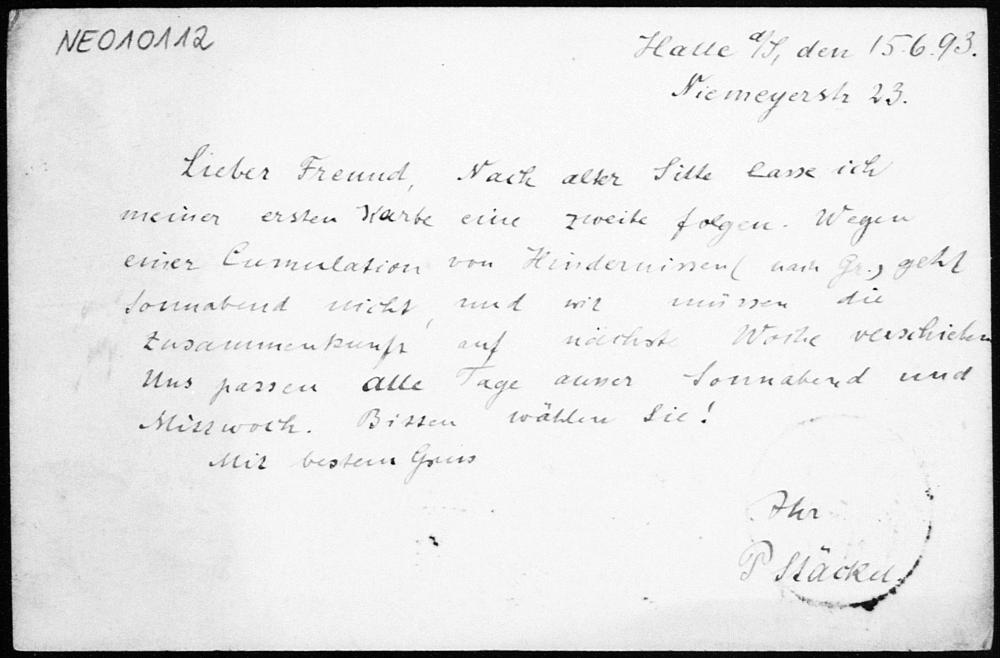 NEO10112
Halle a/S, den 15.6.93.
Niemeyerstr 23.
Lieber Freund, Nach alter Sitte lasse ich
meiner ersten Karte eine zweite folgen. Wegen
einer Cumulation von Hindernissen (nach Gr.) geht
Sonnabend nicht, und wir müssen die
Zusammenkunft auf nächste Woche verschieben
Uns passen alle Tage ausser Sonnabend und
Mittwoch. Bitten wählen Sie!
Mit bestem Gruss
Ihr
P Stäckel.